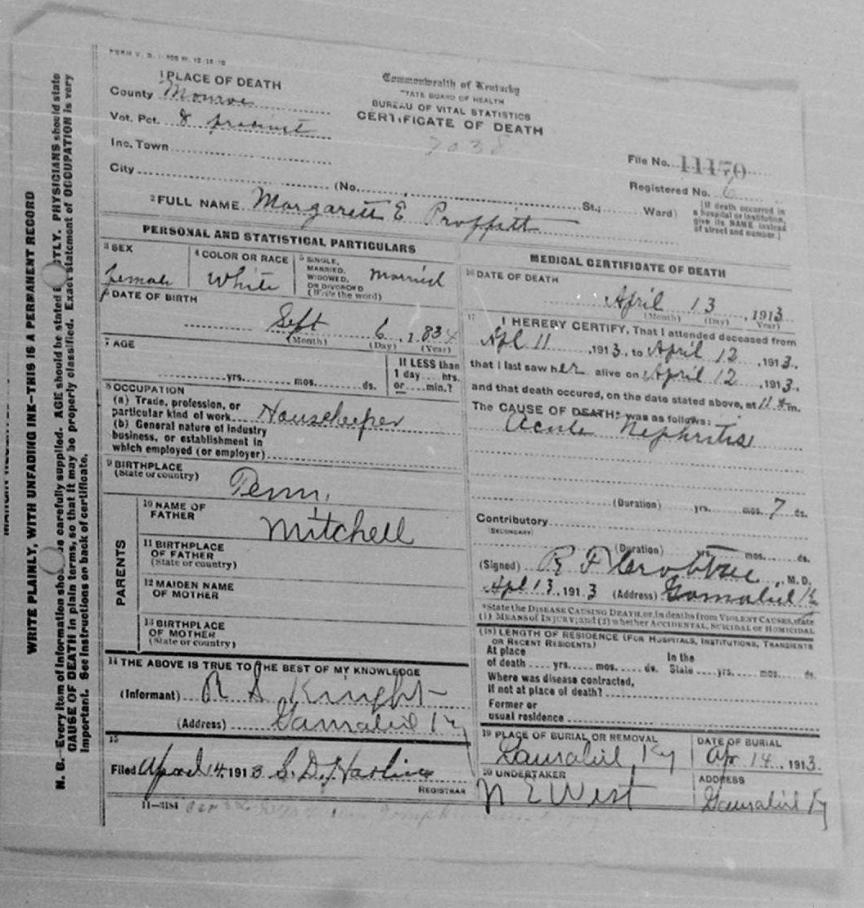 FORM V. S.
Commonwealth of Kentucky
STATE BOARD OF HEALTH
BUREAU OF VITAL STATISTICS
CERTIFICATE OF DEATH
7038
1 PLACE OF DEATH
County Monroe
Vot. Pct. 8 precinct
Inc. Town
City
(No. St.; Ward)
File No. 11170
Registered No. 6
[If death occurred in
a hospital or institution,
give its NAME instead
of street and number.]
2 FULL NAME Margarett E Proffitt
PERSONAL AND STATISTICAL PARTICULARS
3 SEX
female
4 COLOR OR RACE
White
5 SINGLE,
MARRIED,
WIDOWED,
OR DIVORCED
(Write the word)
Married
6 DATE OF BIRTH
Sept 6, 1834
(Month) (Day) (Year)
7 AGE
yrs. mos. ds.
If LESS than
1 day hrs.
or min.?
8 OCCUPATION
(a) Trade, profession, or
particular kind of work Housekeeper
(b) General nature of industry
business, or establishment in
which employed (or employer)
9 BIRTHPLACE
(State or country)
Tenn.
PARENTS
10 NAME OF
FATHER
Mitchell
11 BIRTHPLACE
OF FATHER
(State or country)
12 MAIDEN NAME
OF MOTHER
13 BIRTHPLACE
OF MOTHER
(State or country)
14 THE ABOVE IS TRUE TO THE BEST OF MY KNOWLEDGE
(Informant) R S Knight
(Address) Gamaliel Ky
15
Filed April 14, 1913 S. D.
REGISTRAR
11-3184
MEDICAL CERTIFICATE OF DEATH
16 DATE OF DEATH
April 13, 1913
(Month) (Day) Year)
17 I HEREBY CERTIFY, That I attended deceased from
Apl 11, 1913, to April 12, 1913,
that I last saw her alive on April 12, 1913,
and that death occured, on the date stated above, at 11 m.
The CAUSE OF DEATH* was as follows:
Acute Nephritis
(Duration) yrs. mos. 7 ds.
Contributory
(SECONDARY)
(Duration) yrs. mos. ds.
(Signed) R F Crabtree, M. D.
Apl 13, 1913 (Address) Gamaliel Ky
*State the DISEASE CAUSING DEATH, or, in deaths from VIOLENT CAUSES, state
(1) MEANS OF INJURY; and (2) whether ACCIDENTAL, SUICIDAL or HOMICIDAL
(18) LENGTH OF RESIDENCE (FOR HOSPITALS, INSTITUTIONS, TRANSIENTS
OR RECENT RESIDENTS)
At place In the
of death yrs. mos. ds. State yrs. mos. ds.
Where was disease contracted,
if not at place of death?
Former or
usual residence
19 PLACE OF BURIAL OR REMOVAL
Gamaliel, Ky
DATE OF BURIAL
Apr 14, 1913.
20 UNDERTAKER
N E West
ADDRESS
Gamaliel Ky
WRITE PLAINLY, WITH UNFADING INK—THIS IS A PERMANENT RECORD
N. B.—Every item of information should be carefully supplied. AGE should be stated EXACTLY. PHYSICIANS should state
CAUSE OF DEATH in plain terms, so that it may be properly classified. Exact statement of OCCUPATION is very
important. See instructions on back of certificate.